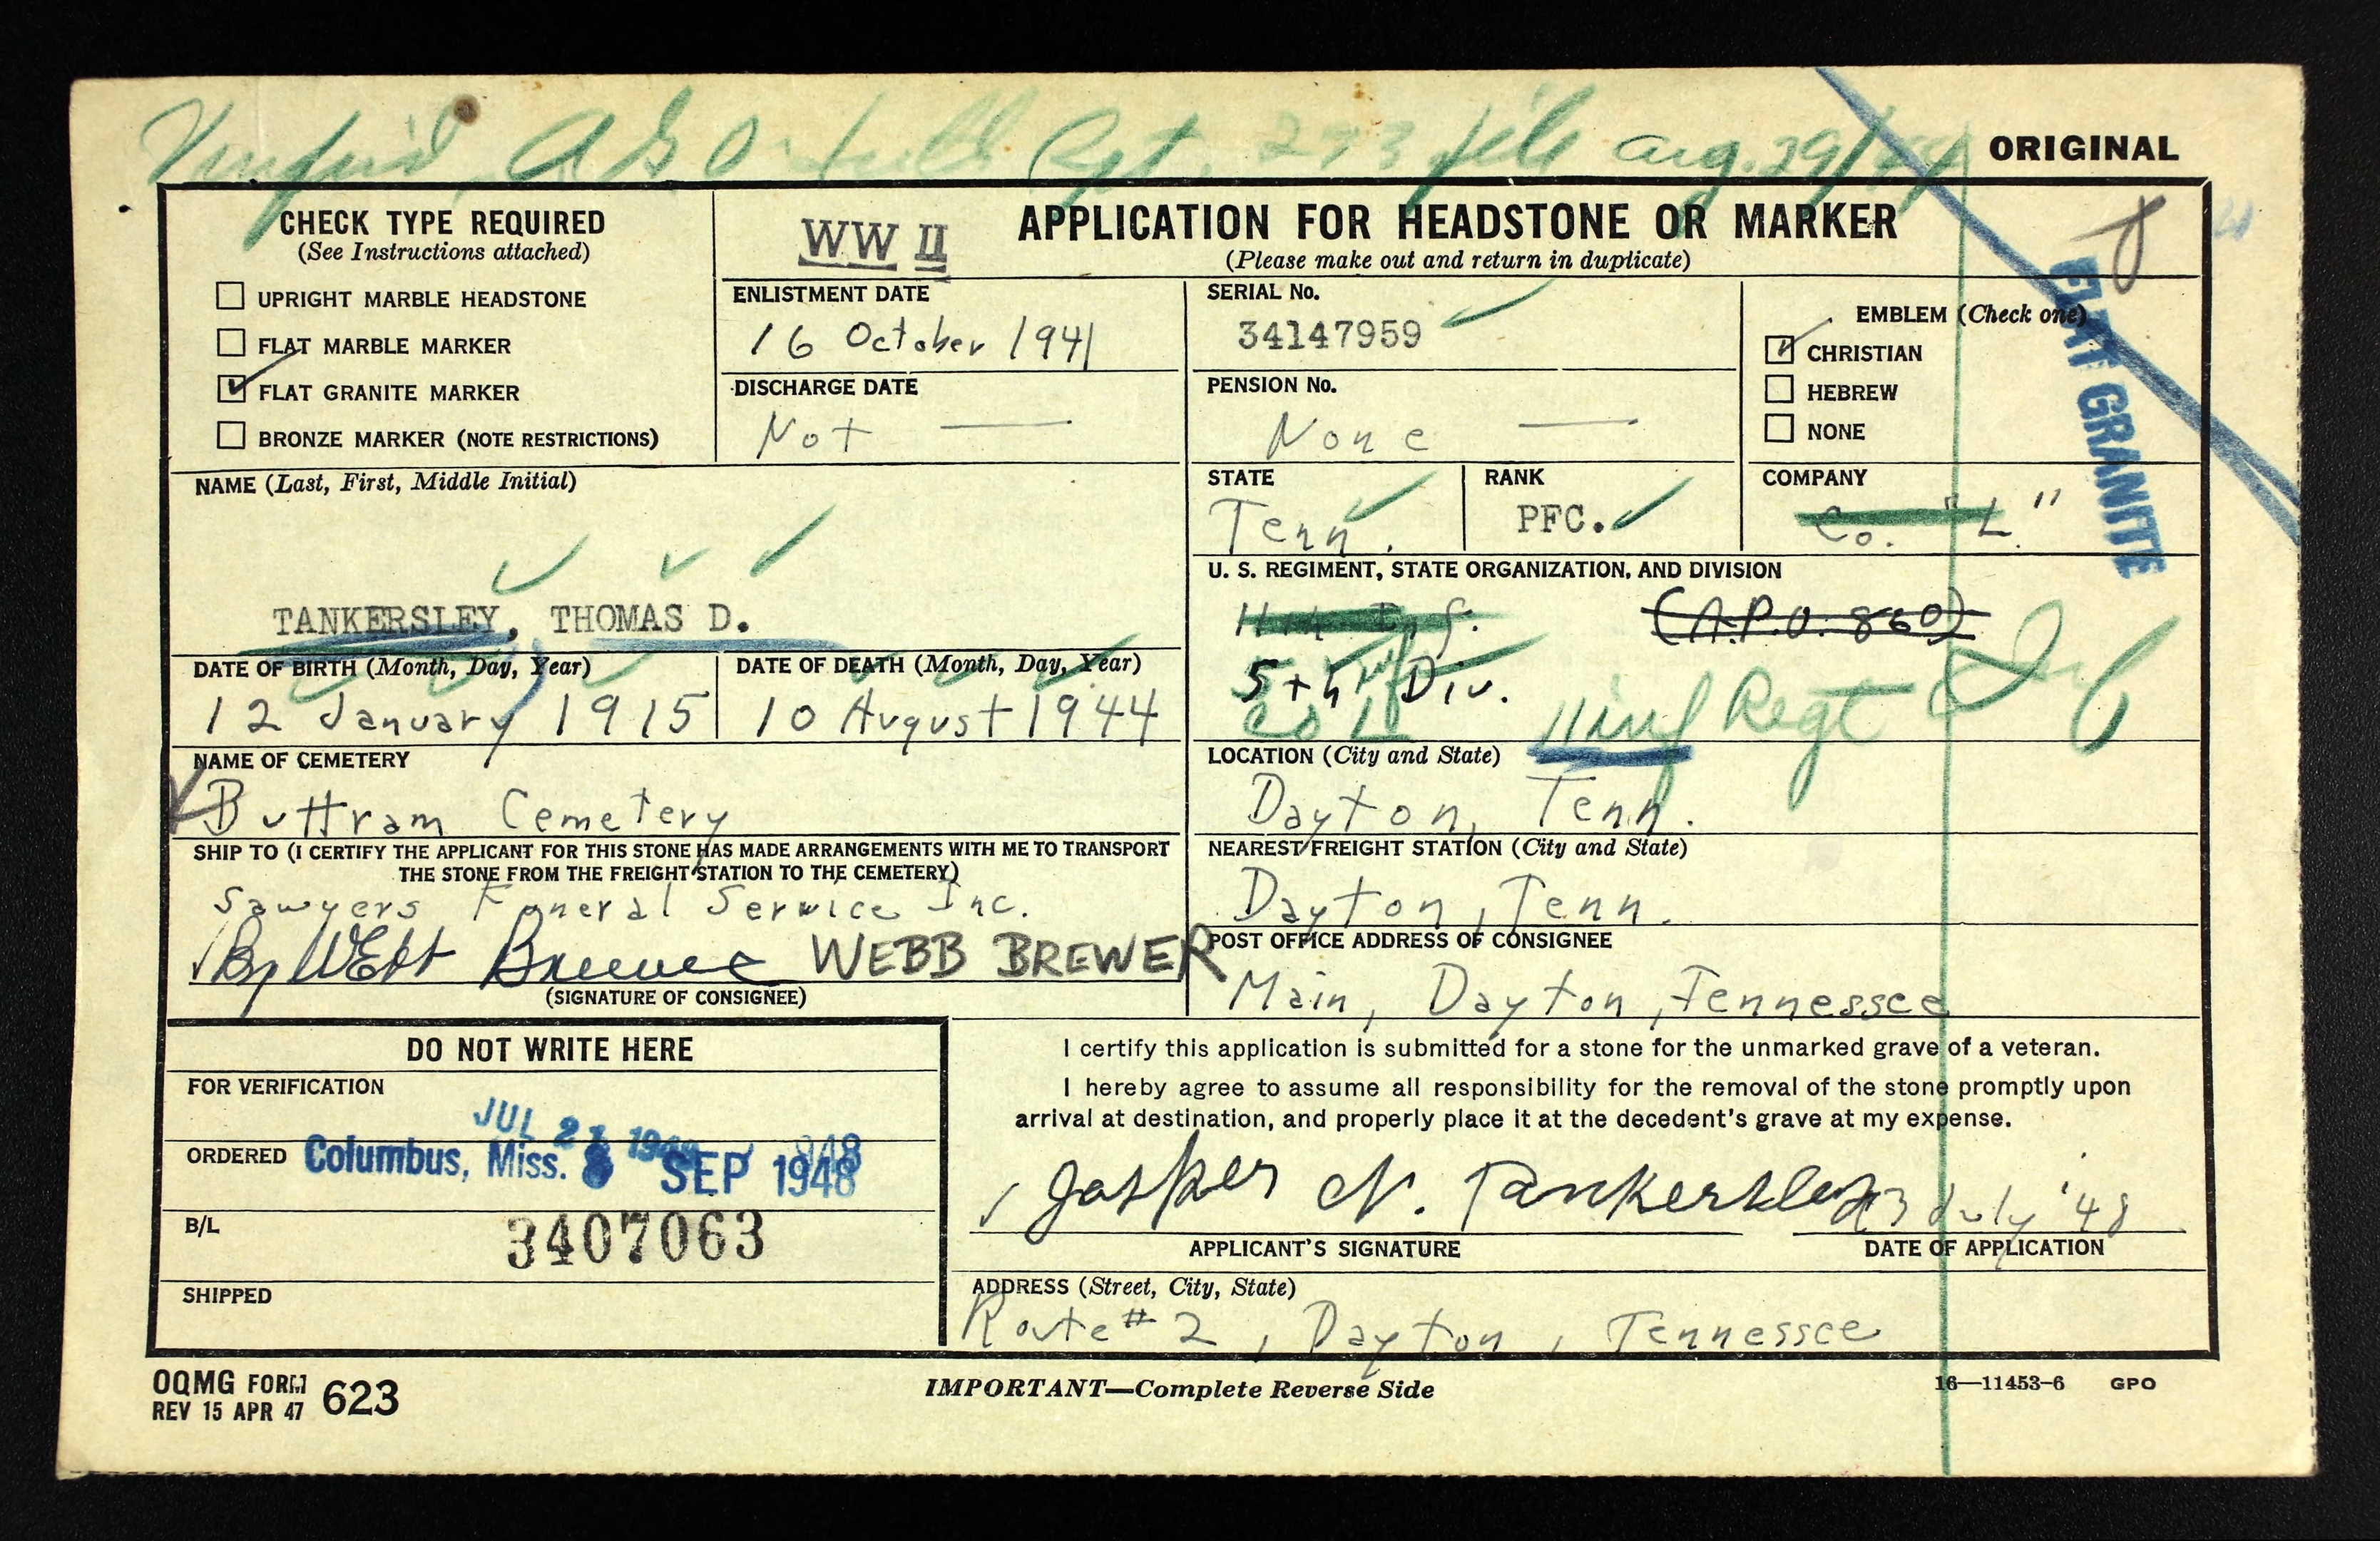 Verified AGO Rpt. 293 file Aug. 29/44
ORIGINAL
CHECK TYPE REQUIRED
(See Instructions attached)
UPRIGHT MARBLE HEADSTONE
FLAT MARBLE MARKER
FLAT GRANITE MARKER
BRONZE MARKER (NOTE RESTRICTIONS)
WW II
APPLICATION FOR HEADSTONE OR MARKER
(Please make out and return in duplicate)
ENLISTMENT DATE
16 October 1941
DISCHARGE DATE
Not —
SERIAL No.
34147959
PENSION No.
None —
EMBLEM (Check one)
CHRISTIAN
HEBREW
NONE
FLAT GRANITE
NAME (Last, First, Middle Initial)
TANKERSLEY, THOMAS D.
STATE
Tenn.
RANK
PFC.
COMPANY
Co. "L"
U. S. REGIMENT, STATE ORGANIZATION, AND DIVISION
11th Inf. (A.P.O. 860)
5th Div.
Co L 11 Inf Regt 5 Inf
DATE OF BIRTH (Month, Day, Year)
12 January 1915
DATE OF DEATH (Month, Day, Year)
10 August 1944
NAME OF CEMETERY
Buttram Cemetery
LOCATION (City and State)
Dayton, Tenn.
SHIP TO (I CERTIFY THE APPLICANT FOR THIS STONE HAS MADE ARRANGEMENTS WITH ME TO TRANSPORT
THE STONE FROM THE FREIGHT STATION TO THE CEMETERY)
Sawyers Funeral Service Inc.
By Webb Brewer WEBB BREWER
(SIGNATURE OF CONSIGNEE)
NEAREST FREIGHT STATION (City and State)
Dayton, Tenn.
POST OFFICE ADDRESS OF CONSIGNEE
Main, Dayton, Tennessee
DO NOT WRITE HERE
FOR VERIFICATION
JUL 27 1948
ORDERED Columbus, Miss. 8 SEP 1948
B/L 3407063
SHIPPED
I certify this application is submitted for a stone for the unmarked grave of a veteran.
I hereby agree to assume all responsibility for the removal of the stone promptly upon
arrival at destination, and properly place it at the decedent's grave at my expense.
Jasper N. Tankersley 23 July '48
APPLICANT'S SIGNATURE
DATE OF APPLICATION
ADDRESS (Street, City, State)
Route #2, Dayton, Tennessee
OQMG FORM 623
REV 15 APR 47
IMPORTANT—Complete Reverse Side
16—11453-6 GPO